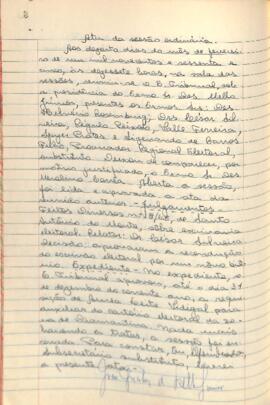 Ata da sessão ordinária.
Aos dezoito dias do mês de feverei-
ro de mil novecentos e sessenta e
cinco, às dezessete horas, na sala das
sessões, reuniu-se o E. Tribunal, sob
a presidência do Exmo. Sr. Des. Mello
Júnior, presentes os Exmos. Srs. Des.
Helvécio Rosenburg, Drs. César Sil-
veira, Régulo Peixoto, Valle Ferreira,
e de Barros
Filho, Procurador Regional Eleitoral,
substituto. Deixou de comparecer, por
motivo justificado, o Exmo. Sr. Des.
. Aberta a sessão,
foi lida e aprovada a ata da
reunião anterior. Julgamentos -
Feitos Diversos nº , de Santo
Antônio do Monte, sobre escrivania
eleitoral. Relator: Dr. César Silveira.
Decisão: aprovaram a recondução
do escrivão eleitoral por um novo biê-
nio. Expediente - No expediente, o
E. Tribunal aprovou, até o dia 31
de dezembro do corrente ano, a requi-
sição de Leite para
auxiliar do cartório eleitoral da zo-
na de Diamantina. Nada mais
havendo a tratar, a sessão foi en-
cerrada. Para constar, eu,
Subsecretário substituto, lavrei
a presente Ata.